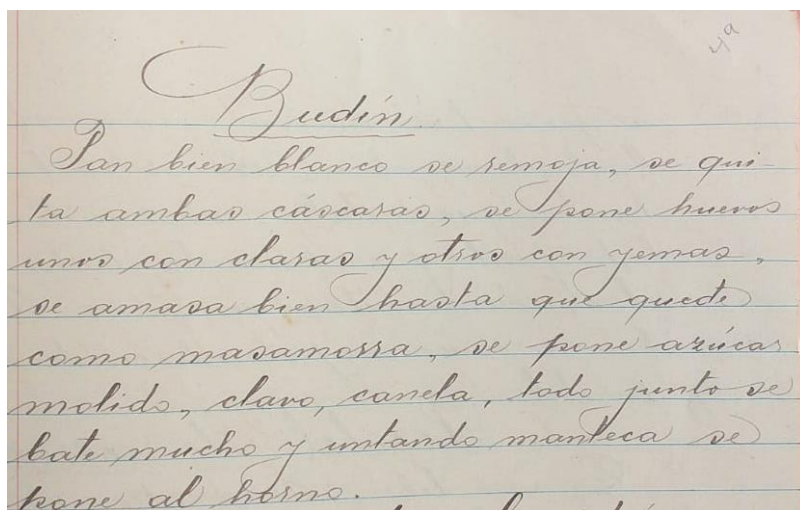 49
Budín.
Pan bien blanco se remoja, se qui-
ta ambas cáscaras, se pone huevos
unos con claras y otros con yemas,
se amasa bien hasta que quede
como masamorra, se pone azúcar
molido, clavo, canela, todo junto se
bate mucho y untando manteca se
pone al horno.